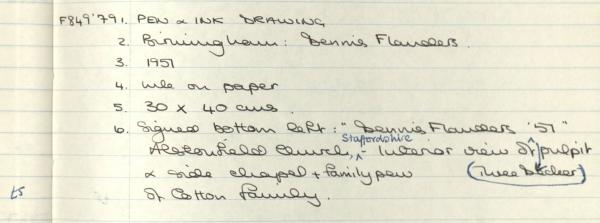 F849'79 1. PEN & INK DRAWING
2. Birmingham: Dennis Flanders.
3. 1951
4. ink on paper
5. 30 x 40 cms.
6. Signed bottom left: "Dennis Flanders '51"
Staffordshire
Alstonfield Church, - Interior view of pulpit
(Three Decker)
& side chapel + family pew
of Cotton family.